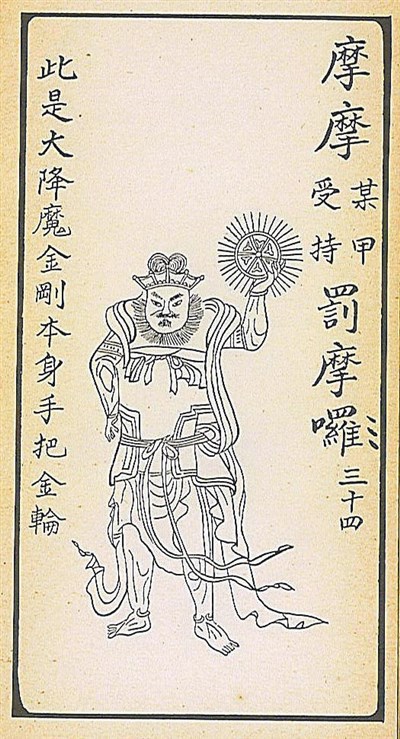 摩摩
某甲
受持
罰摩囉
三十四
此是大降魔金剛本身手把金輪